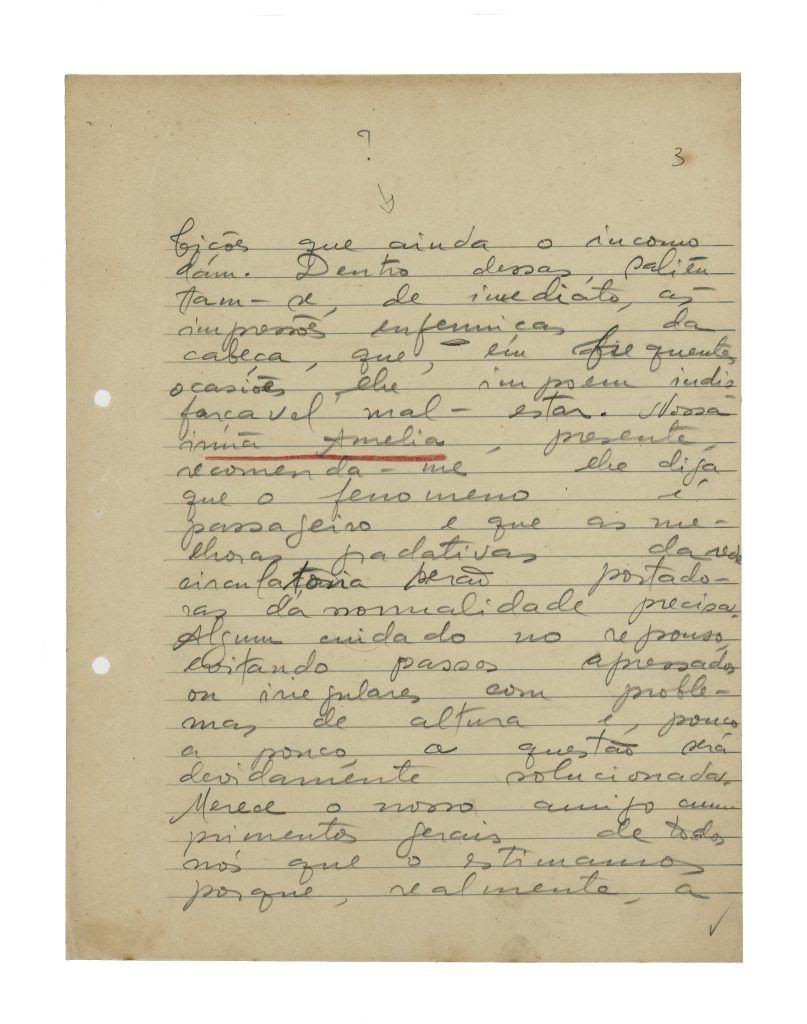 ?
3
tições que ainda o incomo
dam. Dentro dessas, salien
tam-se, de imediáto, as
impressões enfermiças da
cabeça, que, em frequentes
ocasiões, lhe impoem indis
farçavel mal-estar. Nossa
irmã Amelia, presente,
recomenda-me lhe diga
que o fenomeno é
passageiro e que as me-
lhoras gradativas da rede
circulatoria serão portado-
ras da normalidade precisa.
Algum cuidado no repouso,
evitando passos apressados
ou irregulares com proble-
mas de altura e, pouco
a pouco, a questão será
devidamente solucionada.
Merece o nosso amigo cum-
primentos gerais de todos
nós que o estimamos
porque, realmente, a